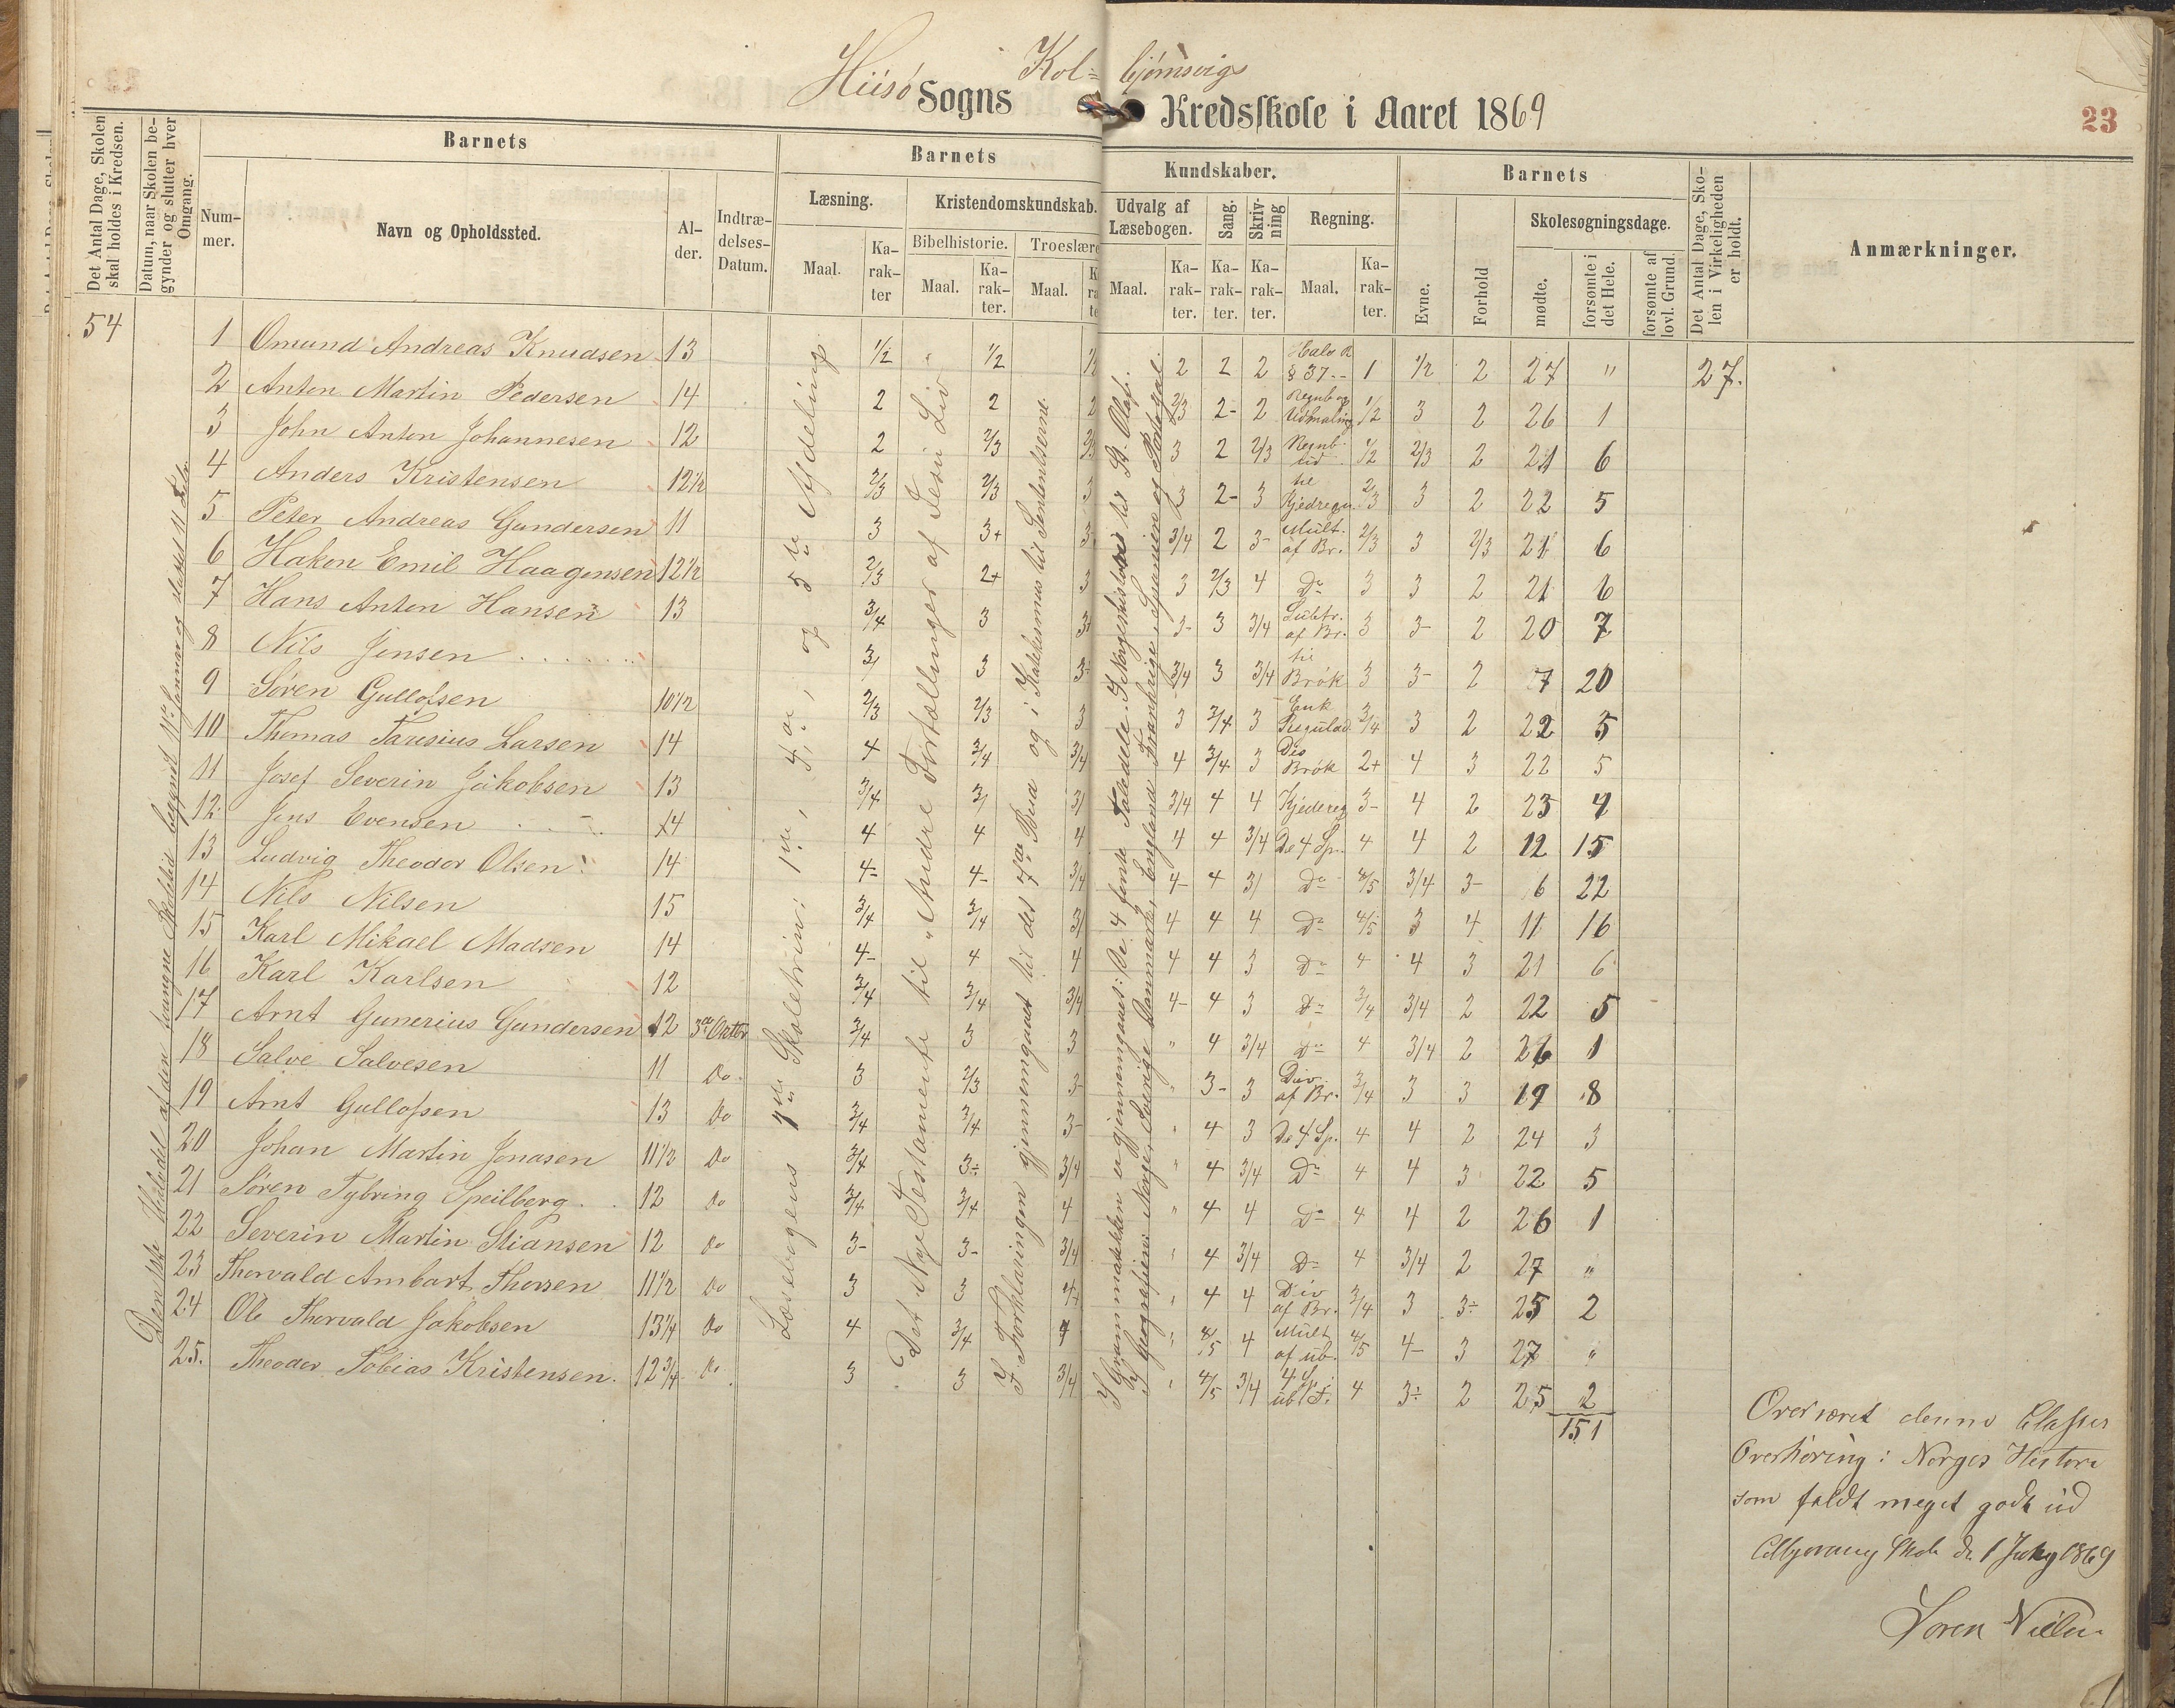 Hiisö Sogns Kol= bjørnsvigs Kredsskole i Aaret 1869
23
Det Antal Dage, Skolen skal holdes i Kredsen.
Datum, naar Skolen begynder og slutter hver Omgang.
Barnets
Nummer.
Navn og Opholdssted.
Alder.
Indtrædelses-Datum.
Barnets Kundskaber.
Læsning.
Maal.
Karakter
Kristendomskundskab.
Bibelhistorie.
Maal.
Karakter.
Troeslære
Maal.
Udvalg af Læsebogen.
Maal.
Karakter.
Sang.
Karakter.
Skrivning
Karakter.
Regning.
Maal.
Karakter.
Barnets
Evne.
Forhold
Skolesøgningsdage.
mødte.
forsømte i det Hele.
forsømte af lovl. Grund.
Det Antal Dage, Skolen i Virkeligheden er holdt.
Anmærkninger.
54
1 Omund Andreas Knudsen 13 1/2 " 1/2 2 2 2 § 37 1 1/2 2 27 " 27.
2 Anton Martin Pedersen 14 2 2 2 2/3 2- 2 Regnb og Udmaling 1/2 3 2 26 1
3 John Anton Johannesen 12 2 2/3 3 2 2/3 Regnb. ud 1/2 2/3 2 21 6
4 Anders Kristensen 12 1/2 2/3 2/3 3 3 2- 3 til Kjedregn. 2/3 3 2 22 5
5 Peter Andreas Gundersen 11 3 3+ 3 3/4 2 3- Mult. af Br. 2/3 3 2/3 21 6
6 Hakon Emil Haagensen 12 1/2 2/3 2+ 3 3 2/3 4 Do 3 3 2 21 6
7 Hans Anton Hansen 13 3/4 3 3- 3 3/4 Subtr. af Br. 3 3- 2 20 7
8 Nils Jensen 3/ 3 3- 3/4 3 3/4 til Brøk 3 3- 2 7 20
9 Søren Gullofsen 10 1/2 2/3 2/3 3 3 3/4 3 Enk Regulad

3/4 3 2 22 5
10 Thomas Taresius Larsen 14 4 3/4 3/4 4 3/4 3 Brøk 2+ 4 3 22 5
11 Josef Severin Jakobsen 13 3/4 3/ 3/ 3/4 4 4 Kjedereg 3- 4 2 23 4
12. Jens Evensen 14 4 4 4 4 4 3/4 De 4 Sp. 4 4 2 12 15
13 Ludvig Theodor Olsen 14 4- 4- 3/4 4- 4 3/ Do 4/5 3/4 3- 6 22
14 Nils Nilsen 15 3/4 3/4 3/ 4 4 4 Do 4/5 3 4 11 16
15 Karl Mikael Madsen 14 4- 4 4 4 4 3 Do 4 4 3 21 6
16 Karl Karlsen 12 3/4 3/4 3/4 4- 4 3 Do 3/4 3/4 2 22 5
17 Arnt Gunerius Gundersen 12 3die Oktbr 3/4 3 3 " 4 3/4 Do 4 3/4 2 26 1
18 Salve Salvesen 11 Do. 3 2/3 3- " 3- 3 Div. af Br. 3/4 3 3 19 8
19 Arnt Gullofsen 13 Do 3/4 3/4 3- " 4 3 De 4 Sp. 4 4 2 24 3
20 Johan Martin Jonasen 11 1/2 Do 3/4 3÷ 3/4 " 4 3/4 Do 4 4 3 22 5
21 Søren Tybring Speilberg. 12 Do 3/4 3/4 4 " 4 4 Do 4 4 2 26 1
22 Severin Martin Stiansen 12 Do 3- 3- 3/4 " 4 3/4 Do 4 3/4 2 27 "
23 Thorvald Ambart Thorsen 11 1/2 Do 3 3 4+ " 4 4 Div af Br. 3/4 3 3÷ 25 2
24 Ole Thorvald Jakobsen 13 1/4 Do 4 3/4 4 " 4/5 4 Mult af ub. 4/5 4- 3 27 "
25. Theodor Tobias Kristensen. 12 3/4 Do. 3 3 3/4 " 4/5 3/4 4 3÷ 2 25 2
151
Den 1ste Halvdel af den tvungne Skoletid begyndt 11te Januar og sluttet 11 Febr.
Læsebogens 1ste Skoletrin: 1ste, 4de, og 5te Afdeling
Det Nye Testamente til "Andre Fortællinger af Jesu Liv
I Forklaringen gjennemgaaet til des 7de Bud og i Katekismus til Sententserne.
I Grammatikken er gjennemgaaet: De 4 første Taledele. I Norgeshistorie til St. Olaf.
I Geografien: Norge, Sverige, Danmark, England, Frankrige, Spanien og Portugal.
Overværet denne Classes
Overhøring i Norges Historie
som faldt meget godt ud
Skole d. 1 1869
Søren Nielsen